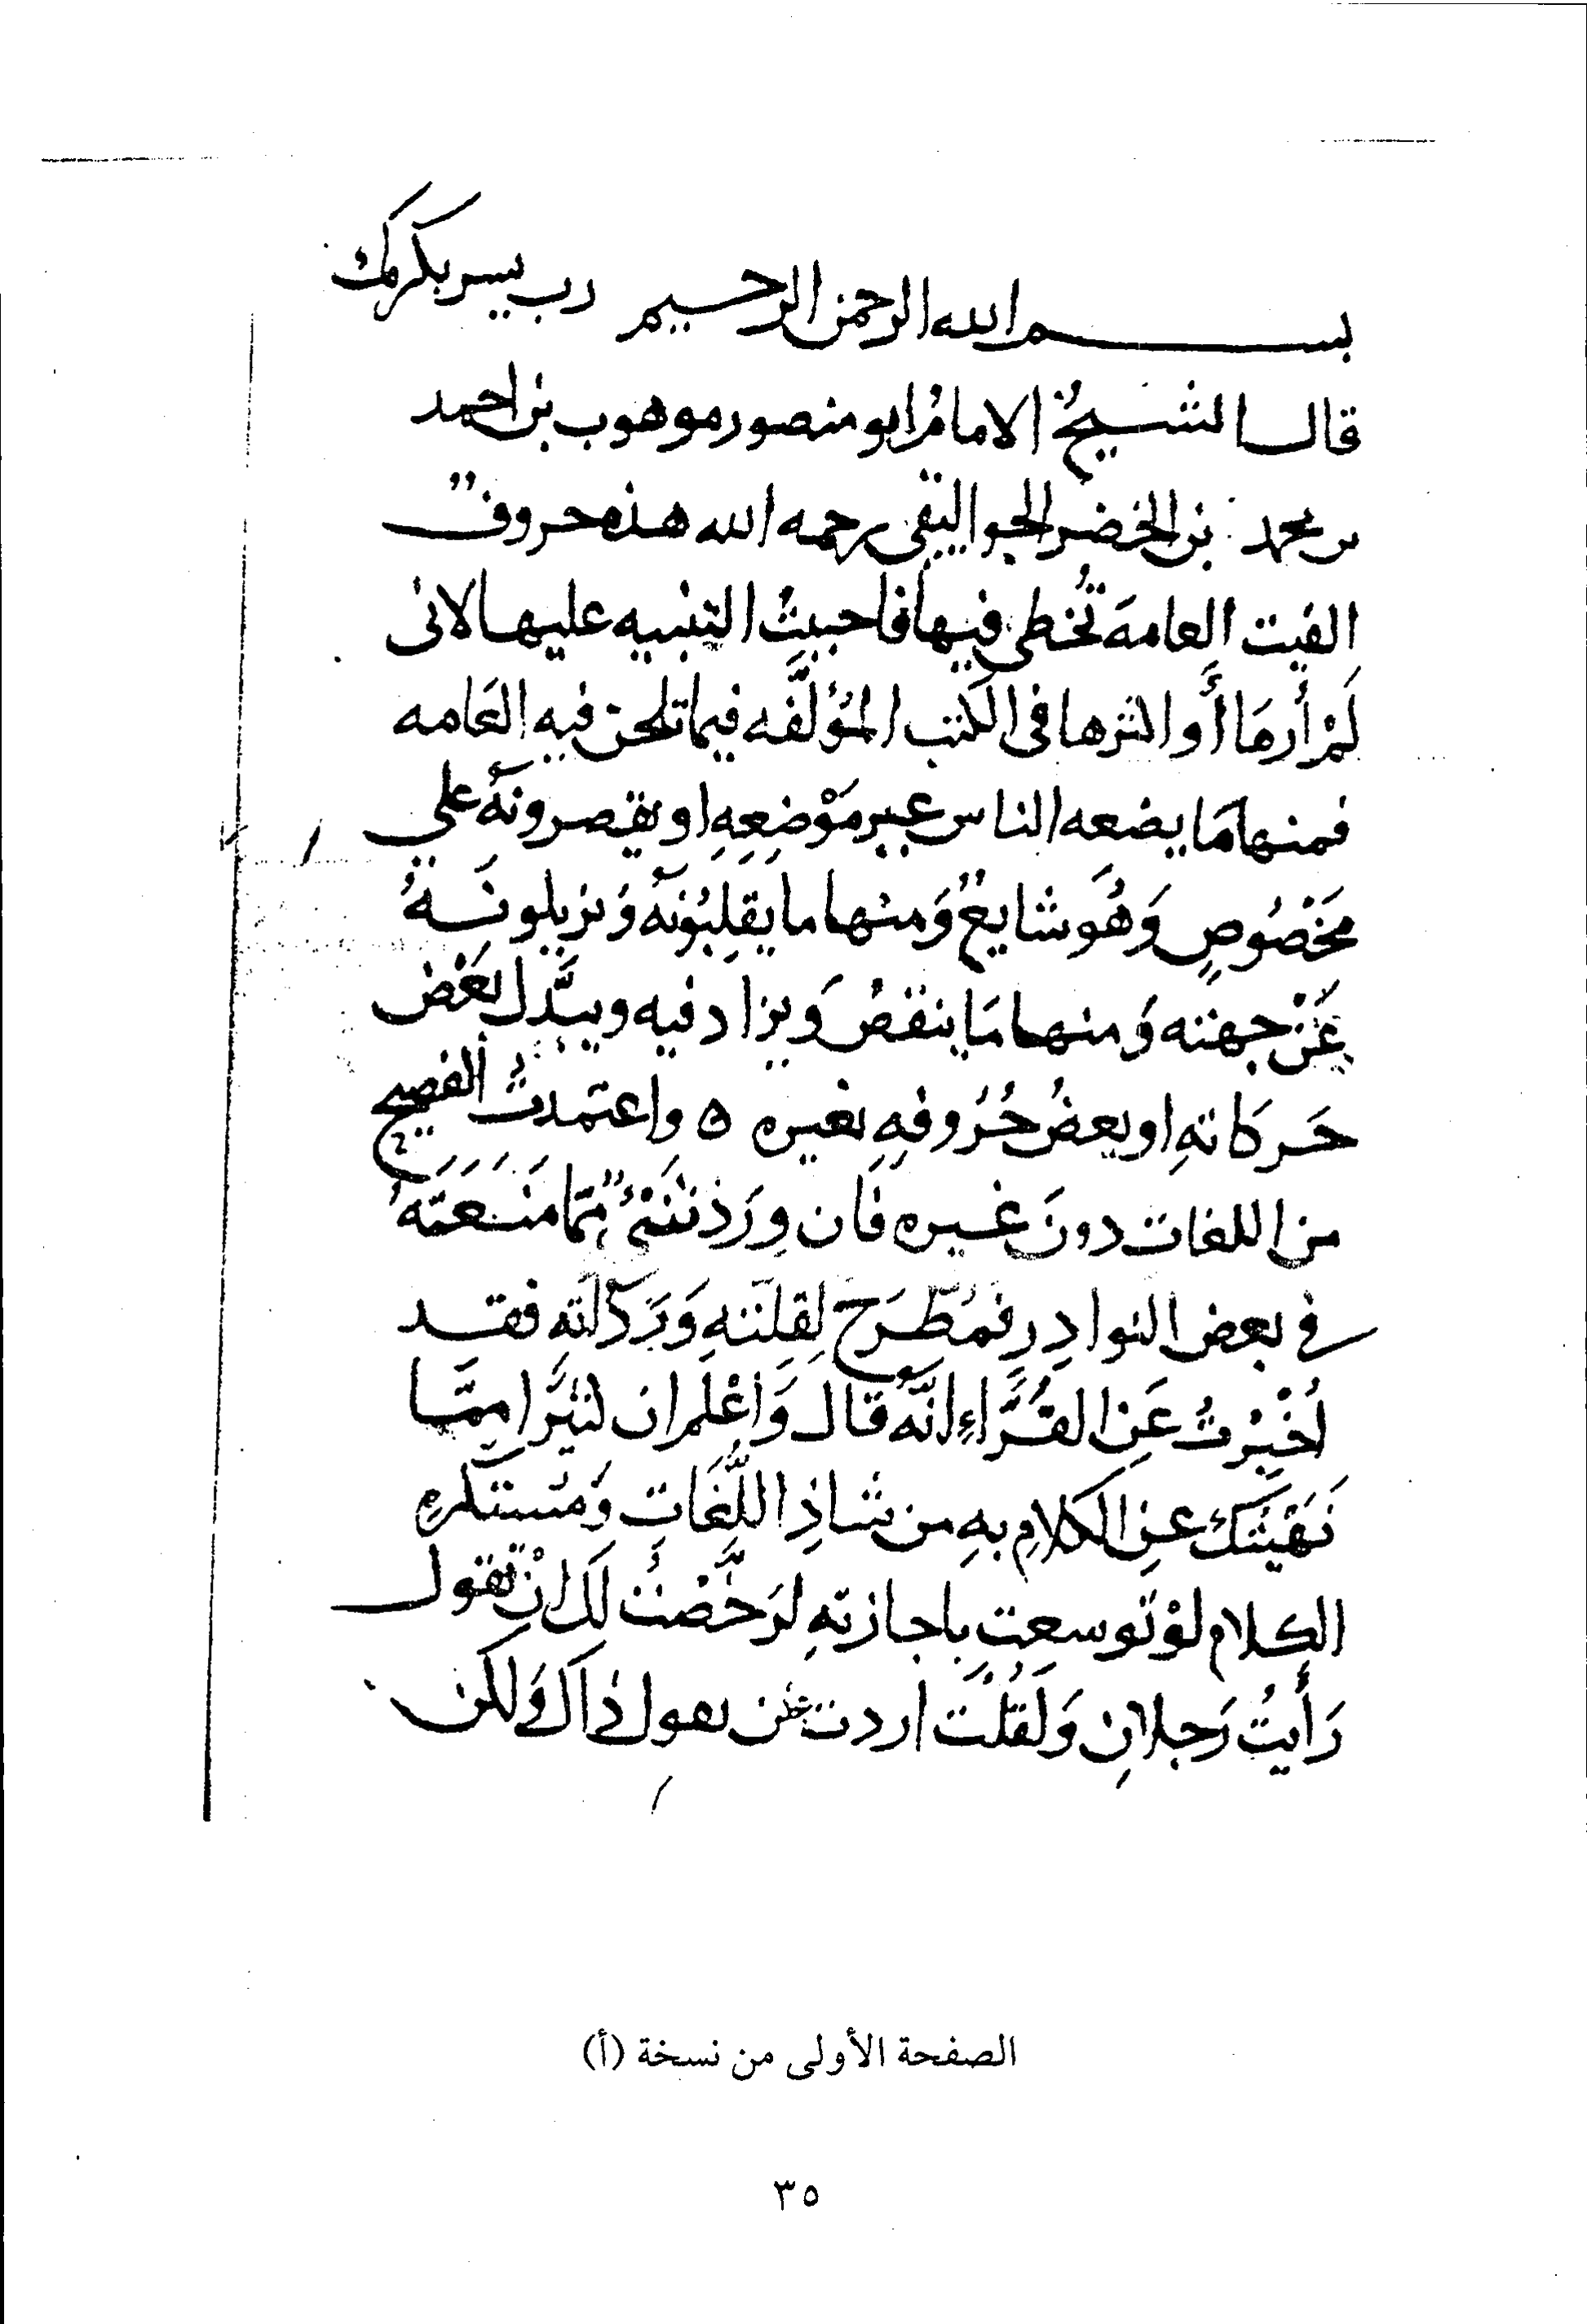 بسم الله الرحمن الرحيم رب يسر بكرمك
قال الشيخُ الامامُ ابو منصور موهوب بن احمد
بن محمد بن الخضر الجواليقى رحمه الله هذه حروفٌ
الفيت العامة تُخطى فيها فاحببتُ التنبيه عليها لانى
لَمْ أرهَا أَو اكثرها فى الكتب المؤلَّفه فيما تلحن فيه العَامه
فمنها مَا يضعه الناس غير مَوْضِعِهِ او يقصرونَهُ على
مَخْصُوصٍ وَهُوَ شايعٌ وَمنها ما يَقلِبُونَهُ وَيزيلونَهُ
عَنْ جهته وَمنها مَا ينقصُ وَيزاد فيه ويبَّدل بعَضُ
حَركاتهِ او بعضُ حُرُوفِهِ بغيره ه واعتمدتُ الفصيح
من اللغات دونَ غيره فَان وِرَدَ شَىْءٌ مِمّا مَنَعْتَهُ
في بعض النوادِرِ فمُطّرَحٌ لِقلّتهِ وَرَدَالَتهِ فقد
اُخْبِرْتُ عَنِ الفَرَّاءِ انَّهُ قال وَاعْلَم ان كثيرًا مِمَّا
نَهَيْتُكَ عنِ الكلامِ بهِ من شاذِ اللُّغَاتِ وَمُستكرهِ
الكلام لوْ توسعت باجازتهِ لرَخَّصْتُ لك انْ تقول
رَأيتُ رَجلانِ وَلَقُلْتَ اردت عن تقول ذاك وَلكن
الصفحة الأولى من نسخة (أ)
٣٥